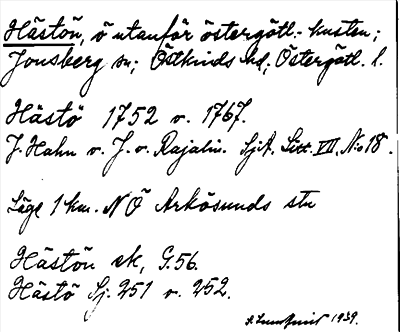 Hästön, ö utanför östergötl.-kusten;
Jonsberg sn; Östkinds hd; Östergötl. l.
Hästö 1752 o. 1767.
J. Hahn o. J. v. Rajalin. SjA. Litt. VII. N:o 18.
Läge 1 km. NÖ Arkösunds stn
Hästön ek, G. 56.
Hästö Sj. 251 o. 252.
1939.